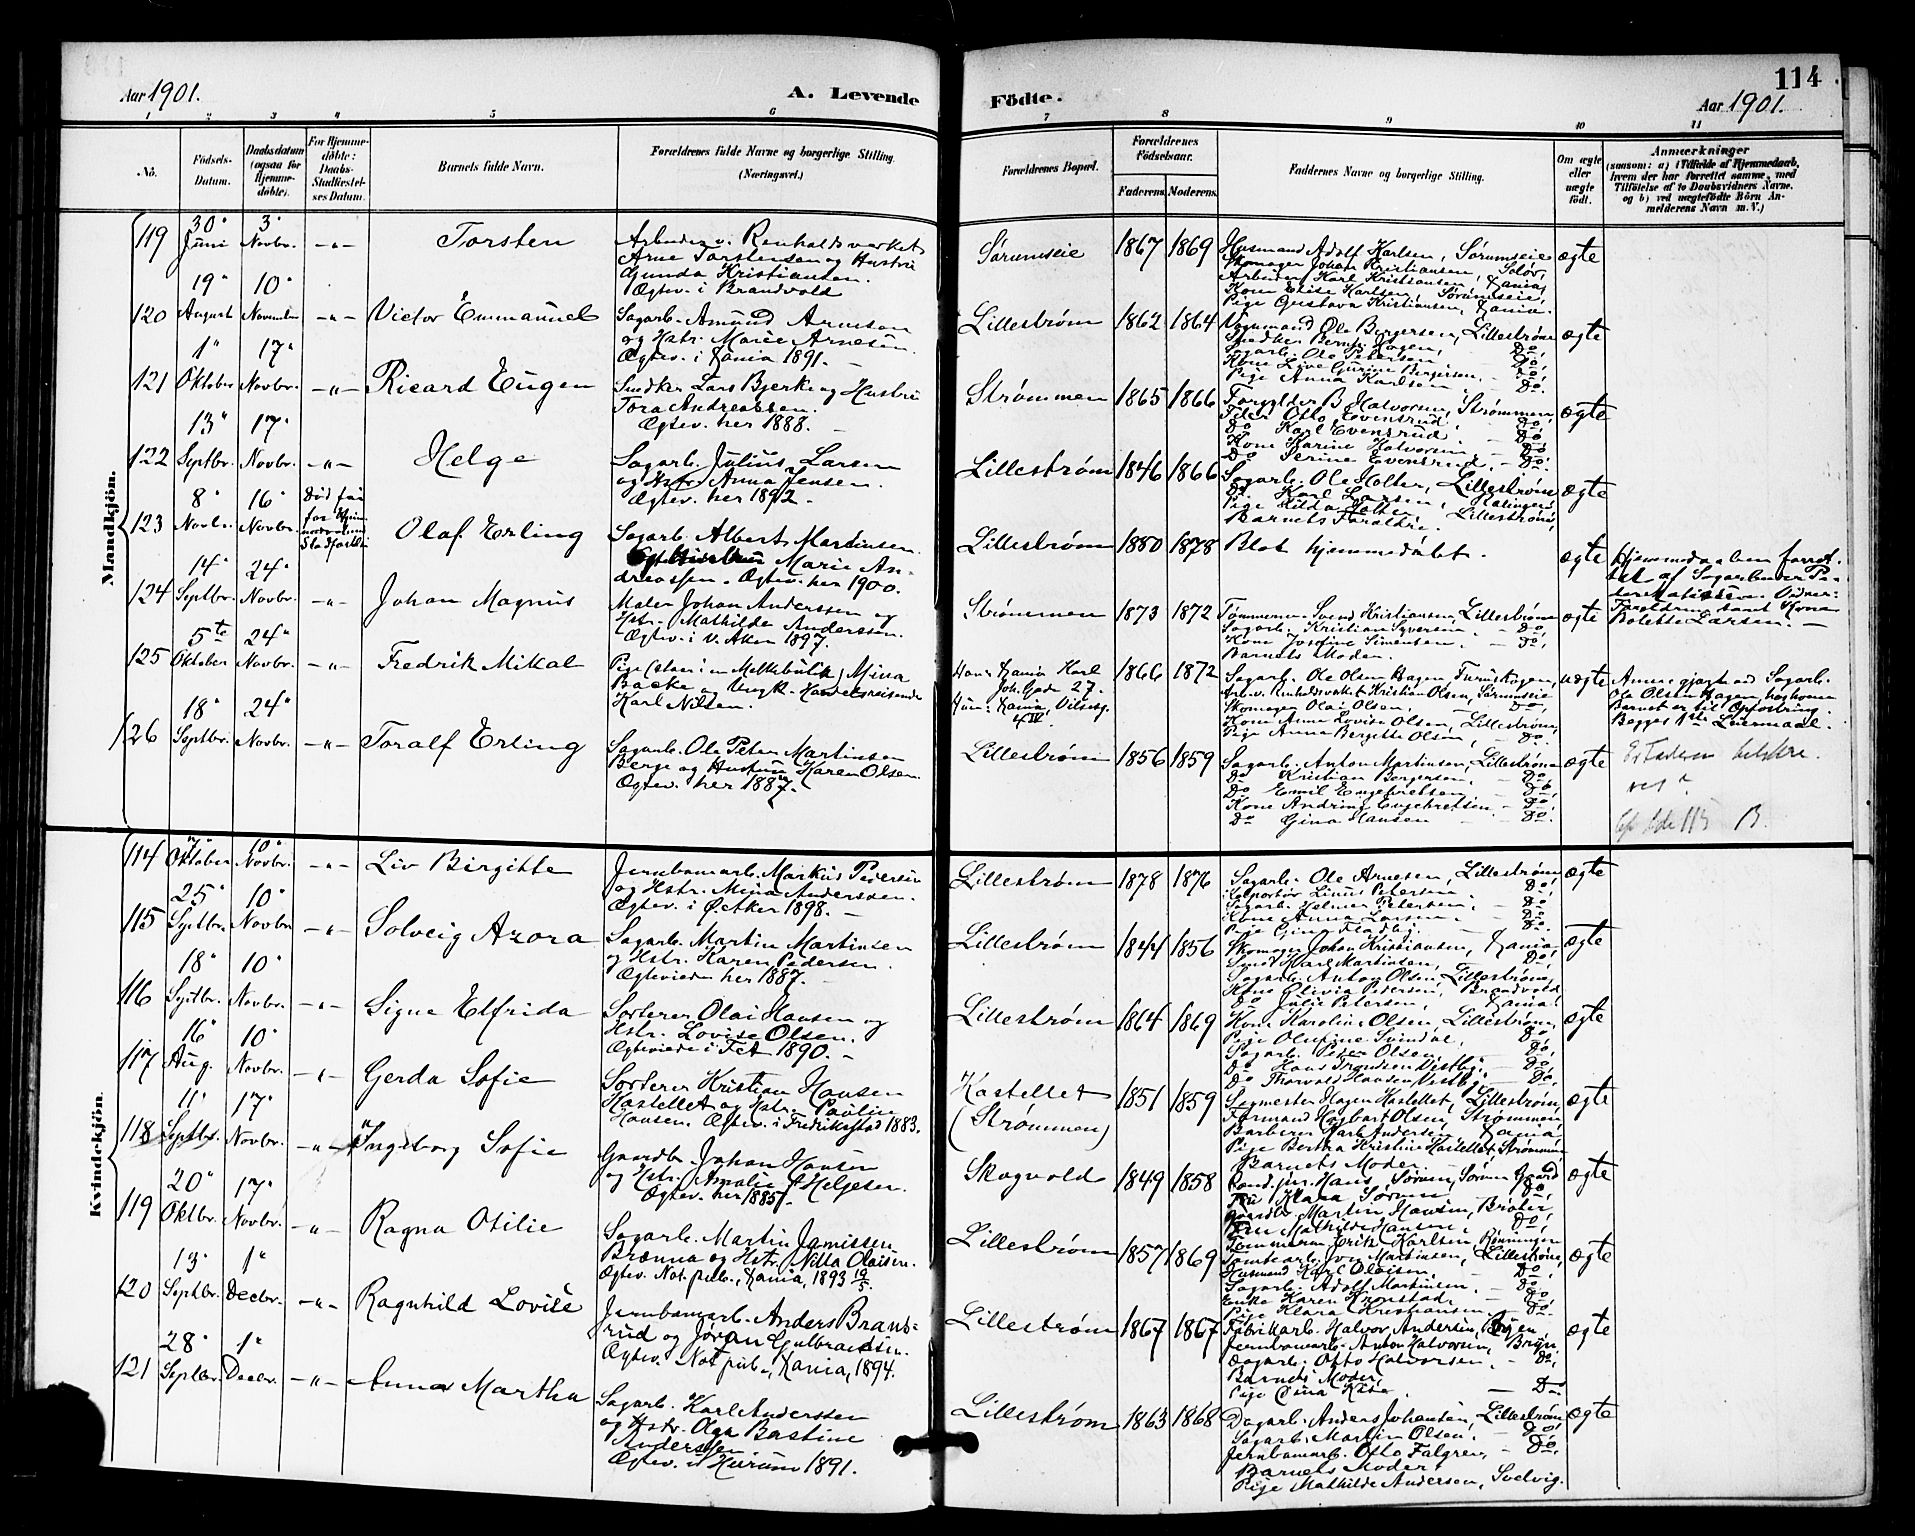 Aar 1901.
A. Levende
Födte.
114
Aar 1901.
1 2 3 4 5 6 7 8 9 10 11
No.
Födsels-Datum.
Daabsdatum (ogsaa for Hjemmedöbte).
For Hjemmedöbte: Daabs-Stadfæstelses Datum.
Barnets fulde Navn.
Forældrenes fulde Navne og borgerlige Stilling.
(Næringsvei.)
Forældrenes Bopæl.
Forældrenes Födselsaar.
Faderens. Moderens.
Faddernes Navne og borgerlige Stilling.
Om ægte eller uægte födt.
Anmærkninger
(saasom: a) i Tilfælde af Hjemmedaab, hvem der har forrettet samme, med Tilföielse af to Daabsvidners Navne, og b) ved uægtefödte Börn Anmelderens Navn m. V.)
Mandkjön.
119 30" Juni 3" Novbr. -"- Torsten
Arbeider v. Renholdsverket
Arne Torstensen og Hustru
Gunda Kristiansen.
Ægtev. i Brandvold
Sørumseie 1867 1869
Husmand Adolf Karlsen, Sørumseie
Skomager Johan Kristiansen, Solør,
Arbeider Karl Kristiansen, Xania,
Kone Elise Karlsen, Sørumseie,
Pige Gustava Kristiansen, Xania.
ægte
120 19" August 10" November -"- Victor Emmanuel
Sagarb. Amund Arnesen
og Hstr. Marie Arnesen.
Ægtev. i Xania 1891. -
Lillestrøm 1862 1864
Vognmand Ole Borgersen, Lillestrøm
Snedker Bernt Hagen, - Do,
Sagarb. Ole Petersen - Do,
Kone Live Gurine Borgersen, - Do,
Pige Anna Karlsen - Do.
ægte
121 1" Oktober 17" Novbr. -"- Ricard Eugen
Snedker Lars Bjerke og Hustru
Tora Andreassen.
Ægtev. her 1888. -
Strømmen 1865 1866
Forgylder B. Halvorsen, Strømmen,
Peter Otto Evensrud, Do,
Do Karl Evensrud. - Do,
Kone Karine Halvorsen - Do,
Do Serine Evensrud. - Do.
ægte
122 13" Septbr. 17" Novbr. -"- Helge
Sagarb. Julius Larsen
og Hstr. Anna Jensen.
Ægtev. her 1892.
Lillestrøm 1846 1866
Sagarb. Ole Holter, Lillestrøm
Do. Karl Larsen,
Pige Hilda Holter, Lillestrøm,
Barnets Forældre.
ægte
123 8" Novbr. 16" Novbr. Død før Stadfæstelse
Olaf Erling
Sagarb. Albert Martinsen
Hustru Marie Andreassen. Ægtev. her 1900.
Lillestrøm 1880 1878 Blot hjemmedøbt. ægte
Hjemmedaaben forrettet af Sagarbeider Peder Mathisen. Vidner: Forældrene samt Kone Bolette Larsen. -
124 14" Septbr. 24" Novbr. -"- Johan Magnus
Maler Johan Anderssen og
Hstr. Mathilde Anderssen.
Ægtev. i V. Aker 1897.
Strømmen 1873 1872
Tømmerm. Svend Kristiansen, Lillestrøm
Sagarb. Kristian Syversen. - Do,
Kone Josefine Simensen. - Do,
Barnets Moder.
ægte
125 5te Oktober 24" Novbr. -"- Fredrik Mikal
Pige (staar i en Melkebutik) Mina
Backe og Ungk. Handelsreisende
Karl Nilsen.
Hans: Xania Karl
Joh. Gade 27.
Hun: Xania,
4 IV
1866 1872
Sagarb. Ole Olsen Hagen,
Arb. v. Renholdsverket Kristian Olsen, Sørumseie
Skomager Olai Olsen, Do,
Kone Anne Lovise Olsen, - Lillestrøm,
Pige Anna Bergitte Olsen, - Do.
uægte
Anm. gjort ved Sagarb.
Ole Olsen Hagen, hos hvem
Barnet er til Opfostring.
Begges 1ste Leiermaal.
126 18" Septbr. 24" Novbr. -"- Toralf Erling
Sagarb. Ole Peter Martinsen
Berge og Hustru Karen Olsen.
Ægtev. her 1887.
Lillestrøm 1856 1859
Sagarb. Anton Martinsen, Lillestrøm
Do Kristian Borgersen. - Do,
Do Emil Engebretsen - Do,
Kone Andrine Engebretsen - Do,
Do Gina Hansen - Do.
ægte
Kvindekjön.
114 7" Oktober 10" Novbr. -"- Liv Birgitte
Jernbanearb. Markus Pedersen
og Hstr. Mina Anderssen.
Ægtev. i Ø. Aker 1898. -
Lillestrøm 1878 1876
Sagarb. Ole Arnesen, Lillestrøm
Kolportør Linus Petersen - Do,
Sagarb. Helmer Petersen, - Do
Kone Anna Larsen. - Do,
Pige Gina Fladby. - Do.
ægte
115 25" Septbr. 10" Novbr. -"- Solveig Azora
Sagarb. Martin Martinsen
og Hstr. Karen Pedersen.
Ægteviede her 1887. -
Lillestrøm 1844 1856
Skomager Johan Kristiansen, Xania,
Smed Karl Martinsen, Do,
Sagarb. Anton Olsen, Lillestrøm,
Kone Olivia Pedersen, Brandvold
Do Julie Petersen, Xania.
ægte
116 18" Septbr. 10" Novbr. -"- Signe Elfrida
Sorterer Olai Hansen og
Hstr. Lovise Olsen.
Ægteviede i Fet 1890. -
Lillestrøm 1864 1869
Kone Karoline Olsen, Lillestrøm,
Pige Olufine Svindal, Do,
Sagarb. Peder Olsen, - Do,
Do Hans Trondsen Vestby, - Do,
Do Thorvald Hansen Vestby, - Do,
ægte
117 16" Aug. 10" Novbr. -"- Gerda Sofie
Sorterer Kristian Hansen
Kastellet og Hstr. Pauline
Hansen. Ægtev. i Fredrikstad 1883.
Kastellet (Strømmen) 1851 1859
Segmester Hagen Kastellet, Lillestrøm,
Formand Hagbart Olsen, Strømmen,
Barberer Karl Andersen, Xania
Pige Bertha Kristine Kastellet Strømmen
Barnets Moder.
ægte
118 11" Septbr. 17" Novbr. -"- Ingeborg Sofie
Gaardbr. Johan Hansen
og Hstr. Amalie Helgesen.
Ægtev. her 1885.
Skogvold 1849 1858
Hans Sørum, Sørum Gaard
Fru Klara Sørum Do,
Gaardbr. Martin Hansen, Bråter,
Fru Mathilde Hansen. Do,
ægte
119 20" Oktbr. 17" Novbr. -"- Ragna Otilie
Sagarb. Martin Jamissen
Brænna og Hstr. Nilla Olaisen.
Ægtev. Not. publ., Xania, 1893 19/5.
Lillestrøm 1857 1869
Tømmerm. Erik Karlsen, Rønningen
Tomtearb. Iver Martinsen, Lillestrøm,
Husmand Karl Olaisen, - Do,
Sagarb. Adolf Martinsen. - Do
Enke Karen Kronstad, - Do,
Pige Klara Kristiansen, - Do.
ægte
120 13" Septbr. 1" Decbr. -"- Ragnhild Lovise
Jernbanearb. Anders Bransrud og Jøran Gulbrandsen.
Ægtev. Not. publ., Xania, 1894.
Lillestrøm 1867 1867
Fabrikarb. Halvor Andersen, Bryn,
Jernbanearb. Anton Halvorsen, Bryn,
Sagarb. Otto Halvorsen, - Do,
Barnets Moder,
Pige Gina - Do
ægte
121 28" Septbr. 1" Decbr. -"- Anna Martha
Sagarb. Karl Anderssen
og Hstr. Olga Bastine
Anderssen
Ægtev. i Hurum 1891.
Lillestrøm 1863 1868
Dagarb. Anders Johansen, Lillestrøm
Sagarb. Martin Olsen. - Do,
Jernbanearb. Otto Falgren, - Do,
Barnets Moder,
Pige Mathilde Andersen, Svelvig.
ægte